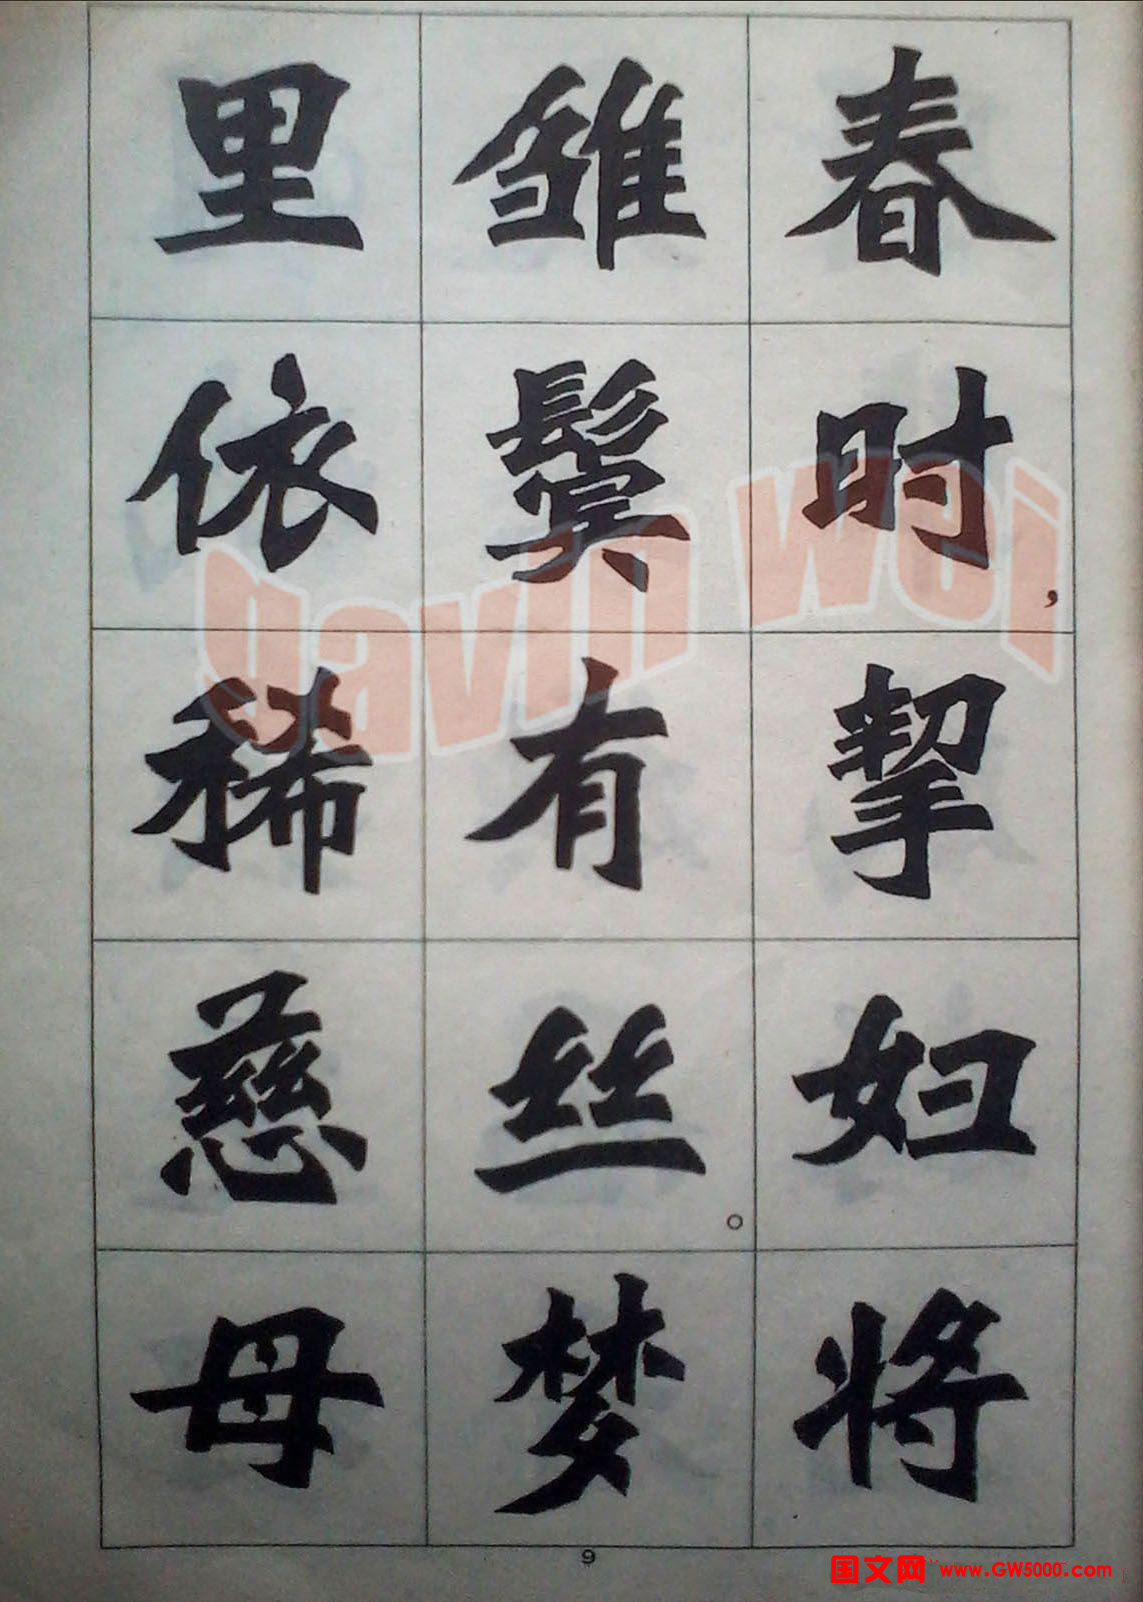 春时，挈妇将
雏鬓有丝。梦
里依稀慈母
gavin wei
9
国文网 www.GW5000.com